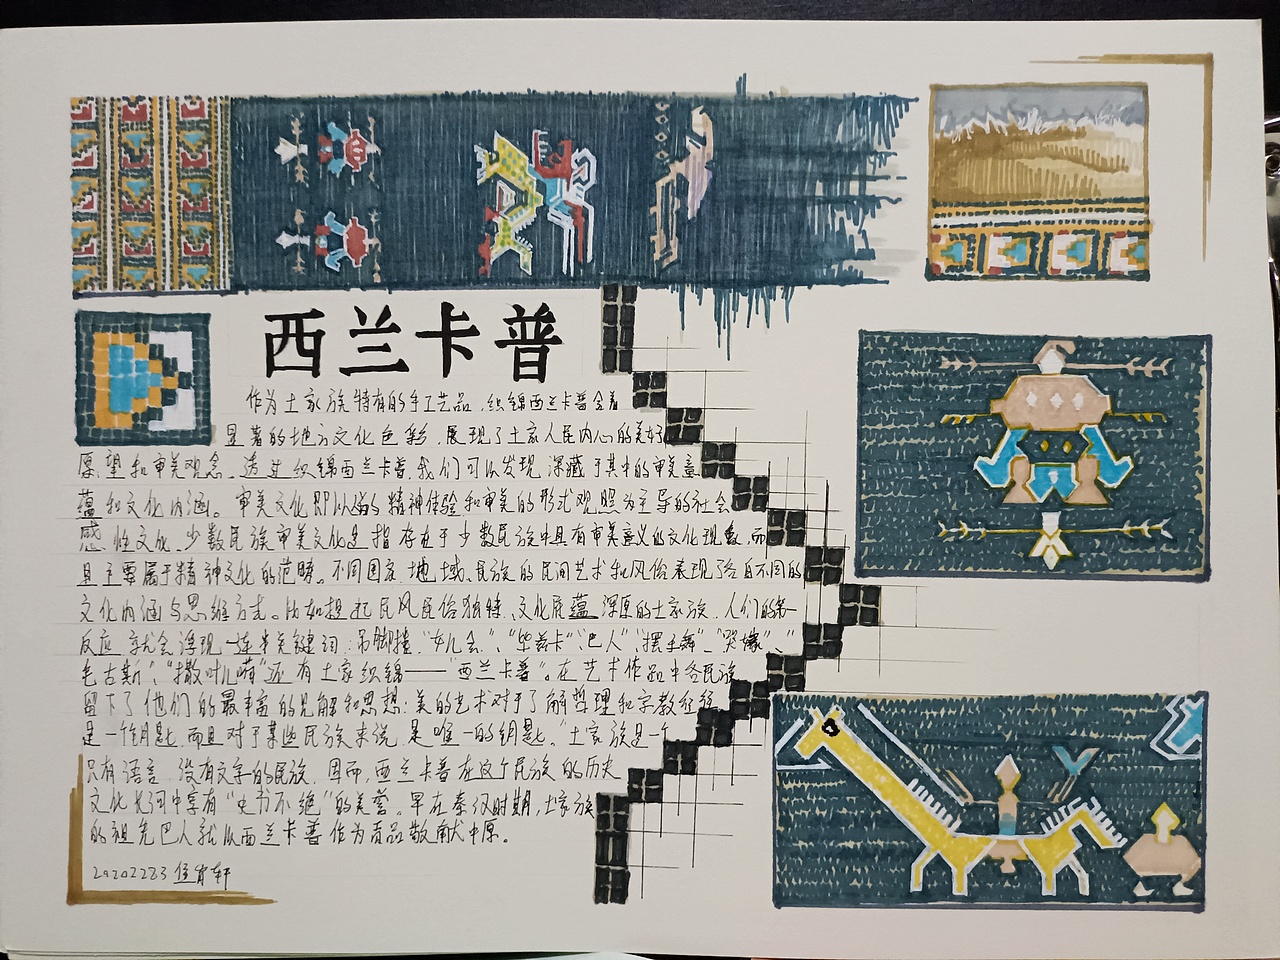 西兰卡普
作为土家族特有的手工艺品,织锦西兰卡普含着
显著的地方文化色彩,展现了土家人民内心的美好
愿望和审美观念。透过织锦西兰卡普,我们可以发现,深藏于其中的审美意
蕴和文化内涵。审美文化即以人的精神体验和审美的形式观照为主导的社会
感性文化,少数民族审美文化是指存在于少数民族中具有审美意义的文化现象,而
且主要属于精神文化的范畴。不同国家、地域、民族的民间艺术和风俗表现了各自不同的
文化内涵与思维方式。比如想起民风民俗独特、文化底蕴深厚的土家族,人们的第一
反应就会浮现一连串关键词:吊脚楼、“女儿会”、“毕兹卡”、“巴人”、“摆手舞”、“哭嫁”、“
毛古斯”、“撒叶儿嗬”还有土家织锦——“西兰卡普”。在艺术作品中各民族
留下了他们的最丰富的见解和思想;美的艺术对于了解哲理和宗教往往
是一个钥匙,而且对于某些民族来说,是唯一的钥匙。“土家族是一个
只有语言,没有文字的民族,因而,西兰卡普在这个民族的历史
文化长河中享有“史书不绝”的美誉。早在秦汉时期,土家族
的祖先巴人就以西兰卡普作为贡品敬献中原。
20202283